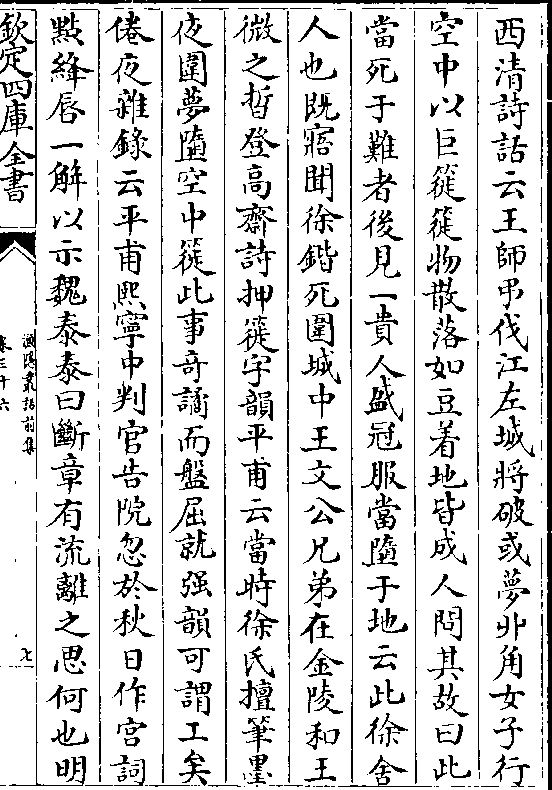 西清詩話云王師弔伐江左城將破或夢丱角女子行
空中以巨簁簁物散落如豆着地皆成人問其故曰此
當死于難者後見一貴人盛冠服當墮于地云此徐舍
人也既寤聞徐鍇死圍城中王文公兄弟在金陵和王
微之晳登高齋詩押簁字韻平甫云當時徐氏擅筆墨
夜圍夢墮空中簁此事奇譎而盤屈就强韻可謂工矣
倦夜雜錄云平甫熙寧中判官告院忽於秋日作宮詞
點絳唇一解以示魏泰泰曰斷章有流離之思何也明
欽定四庫全書
漁隱叢話前集
卷三十六
七